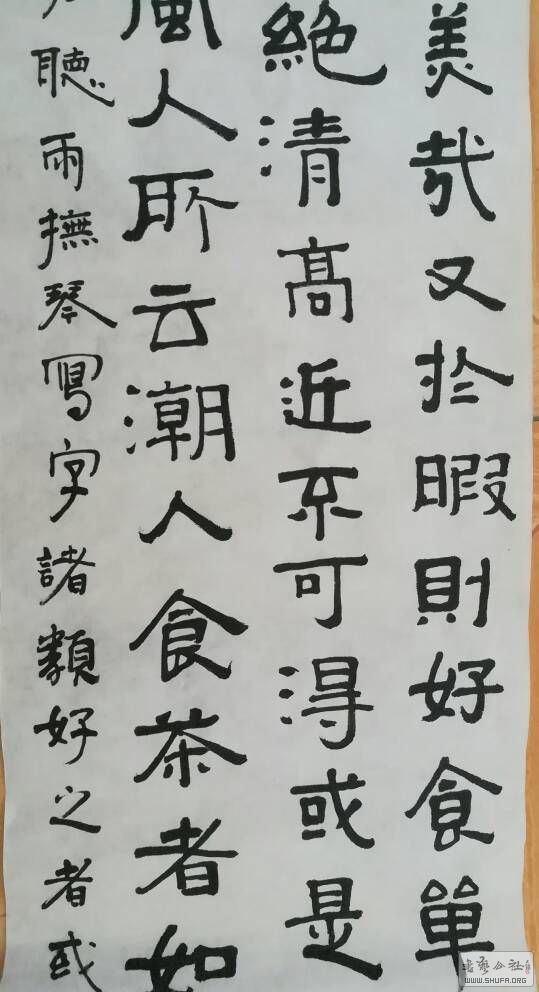 美哉又於暇則好食單
絕清高近不可得或是
風人所云潮人食茶者如
聽雨撫琴寫字諸類好之者或
书艺公社
WWW.SHUFA.ORG